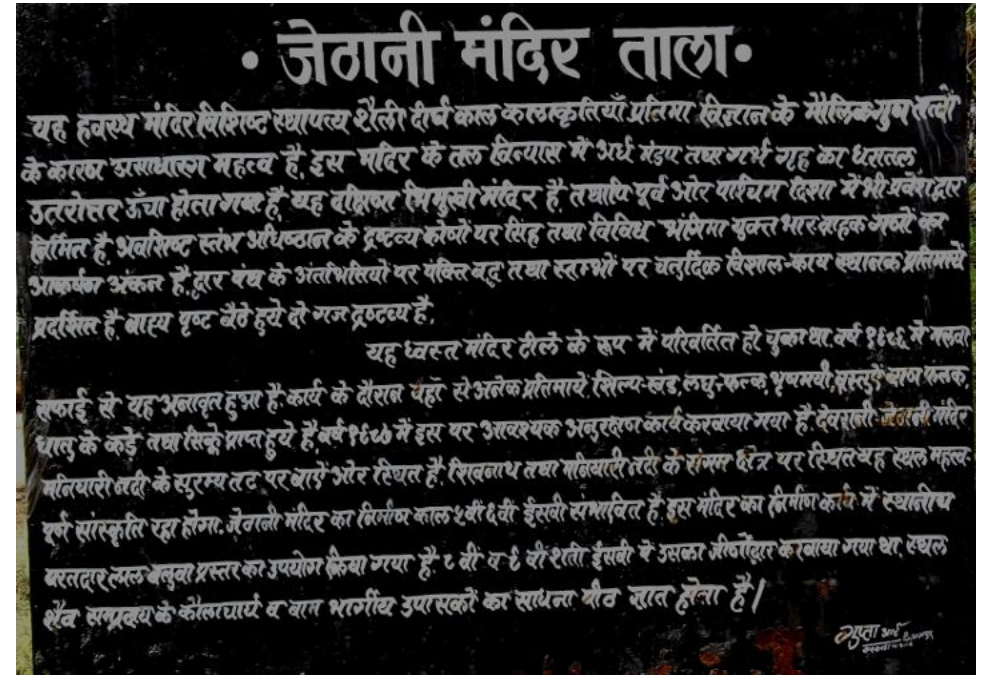 • जेठानी मंदिर ताला •
यह ध्वस्थ मंदिर विशिष्ट स्थापत्य शैली दीर्घ काल कलाकृतियाँ प्रतिमा विज्ञान के मौलिक गुण तत्वों
के कारण असाधारण महत्व है. इस मंदिर के तल विन्यास में अर्ध मंडप तथा गर्भ गृह का धरातल
उतरोत्तर ऊँचा होता गया है, यह दक्षिणा भिमुखी मंदिर है. तथापि पूर्व ओर पश्चिम दिशा में भी प्रवेश द्वार
निर्मित है. अवशिष्ट स्तंभ अधिष्ठान के द्रष्टव्य कोणों पर सिंह तथा विविध भंगिमा युक्त भार वाहक गणों का
आकर्षण अंकन है. द्वार बंध के अंतःभित्तियों पर पंक्ति बद्व तथा स्तम्भों पर चतुर्दिक विशाल-काय स्थानक प्रतिमायें
प्रदर्शित है. बाह्य पृष्ट बैठे हुये दो गज द्रष्टव्य है.
यह ध्वस्त मंदिर टीले के रूप में परिवर्तित हो चुका था. वर्ष १९८६ में मलवा
सफाई से यह अनावृत हुआ है. कार्य के दौरान यहाँ से अनेक प्रतिमायें, शिल्प-खंड, लघु-फलक, मृणमयी, वस्तुऐं बाण फलक,
धातु के कड़े तथा सिक्के प्राप्त हुये हैं, वर्ष १९८७ में इस पर आवश्यक अनुरक्षण कार्य करवाया गया है. देवरानी-जेठानी मंदिर
मनियारी नदी के सुरम्य तट पर बाऐं ओर स्थित है. शिवनाथ तथा मनियारी नदी के संगम क्षेत्र पर स्थित यह स्थल महत्व-
पूर्ण सांस्कृति रहा होगा. जेठानी मंदिर का निर्माण काल ५वीं ६वी ईसवी संभावित है. इस मंदिर का निर्माण कार्य में स्थानीय
परतदार लाल बलुवा प्रस्तर का उपयोग किया गया है. ८ वी व ९ वी शती ईसवी में उसका जीर्णोद्वार करवाया गया था. स्थल
शैव सम्प्रदाय के कौलाचार्य व वाम मार्गीय उपासकों का साधना पीठ ज्ञात होता है।
गुप्ता आर्ट